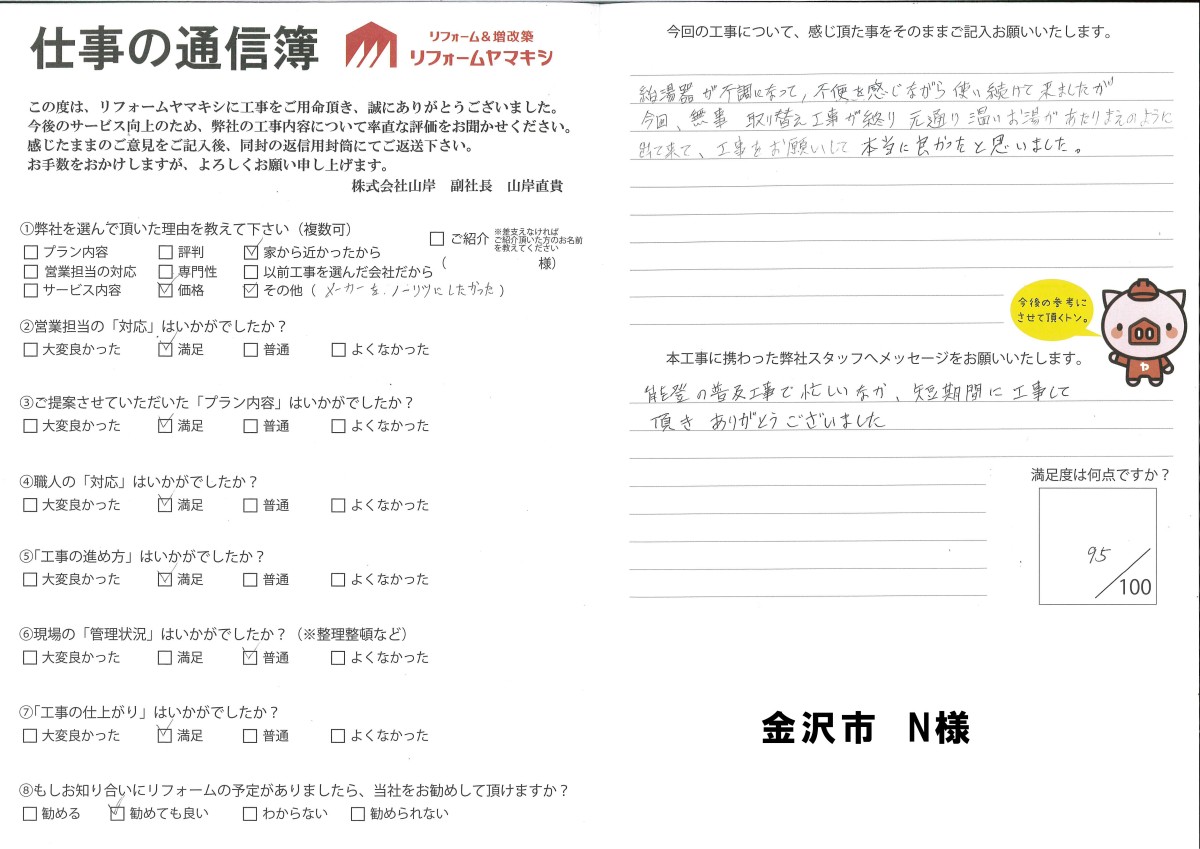 仕事の通信簿
リフォーム&増改築
リフォームヤマキシ
この度は、リフォームヤマキシに工事をご用命頂き、誠にありがとうございました。
今後のサービス向上のため、弊社の工事内容について率直な評価をお聞かせください。
感じたままのご意見をご記入後、同封の返信用封筒にてご返送下さい。
お手数をおかけしますが、よろしくお願い申し上げます。
株式会社山岸 副社長 山岸直貴
①弊社を選んで頂いた理由を教えて下さい（複数可）
□プラン内容 □評判 ☑家から近かったから
□営業担当の対応 □専門性 □以前工事を選んだ会社だから
□サービス内容 ☑価格 ☑その他（メーカーを、ノーリツにしたかった）
□ご紹介 ※差支えなければ
ご紹介頂いた方のお名前
を教えてください
（ 様）
②営業担当の「対応」はいかがでしたか？
□大変良かった ☑満足 □普通 □よくなかった
③ご提案させていただいた「プラン内容」はいかがでしたか？
□大変良かった ☑満足 □普通 □よくなかった
④職人の「対応」はいかがでしたか？
□大変良かった ☑満足 □普通 □よくなかった
⑤「工事の進め方」はいかがでしたか？
□大変良かった ☑満足 □普通 □よくなかった
⑥現場の「管理状況」はいかがでしたか？（※整理整頓など）
□大変良かった □満足 ☑普通 □よくなかった
⑦「工事の仕上がり」はいかがでしたか？
□大変良かった ☑満足 □普通 □よくなかった
⑧もしお知り合いにリフォームの予定がありましたら、当社をお勧めして頂けますか？
□勧める ☑勧めても良い □わからない □勧められない
今回の工事について、感じ頂た事をそのままご記入お願いいたします。
給湯器が不調になって、不便を感じながら使い続けて来ましたが
今回、無事 取り替え工事が終り 元通り 温いお湯があたりまえのように
出て来て、工事をお願いして本当に良かったと思いました。
今後の参考に
させて頂くトン。
ヤ
本工事に携わった弊社スタッフへメッセージをお願いいたします。
能登の普及工事で忙しいなか、短期間に工事して
頂き ありがとうございました
満足度は何点ですか？
95/100
金沢市 N様